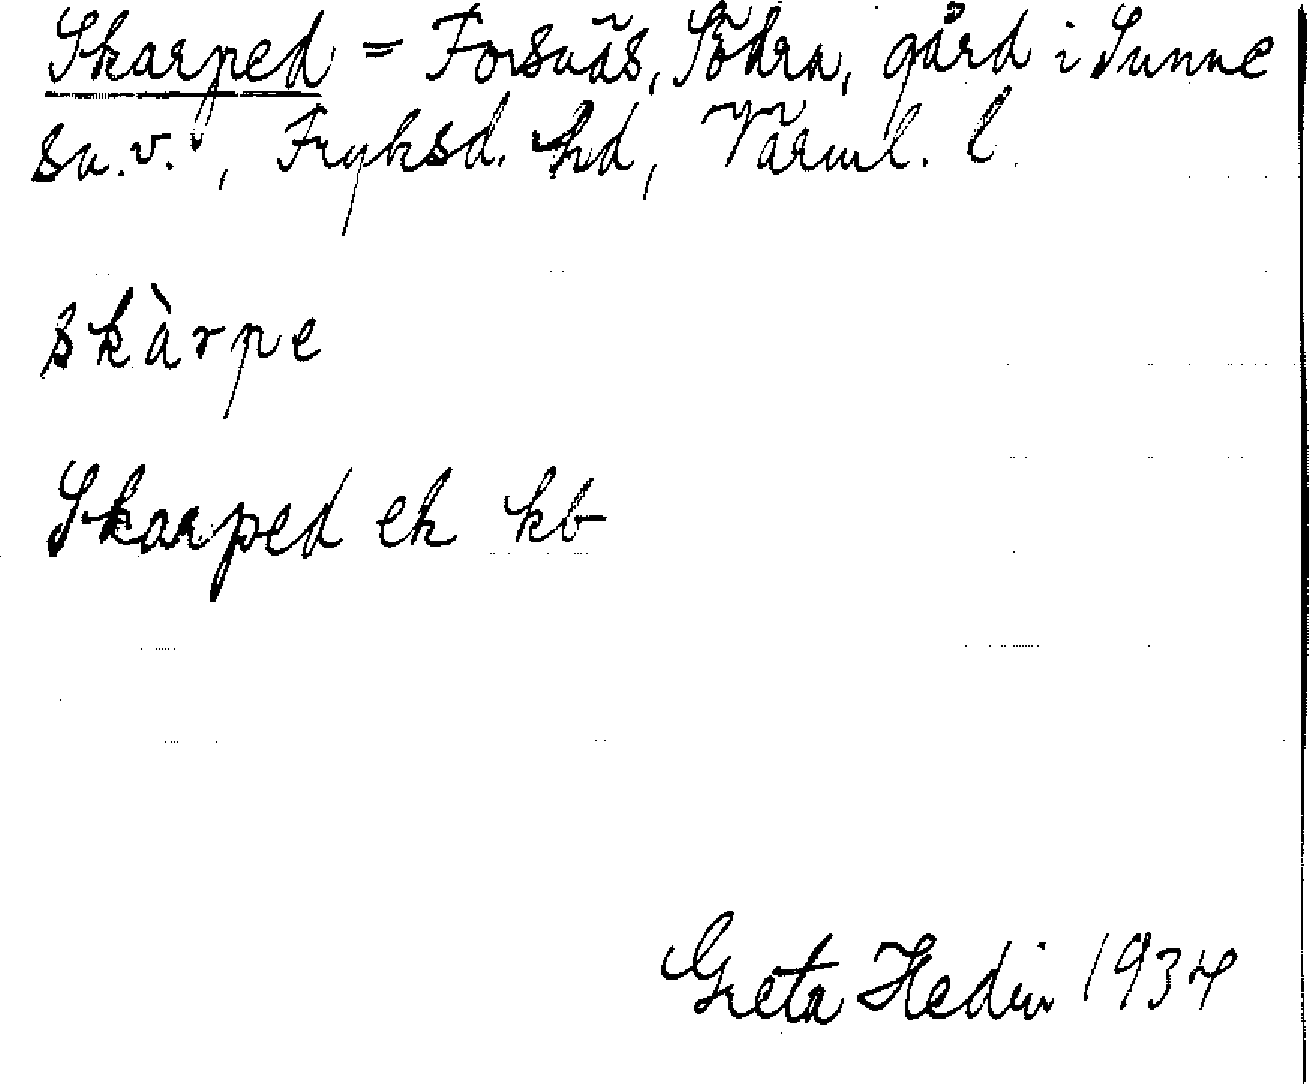 Skarped = Forsnäs, Södra, gård i Sunne
sn. v., Fryksd. hd, Värml. l.
skàrpe
Skarped ek kb
Greta Hedin 1934